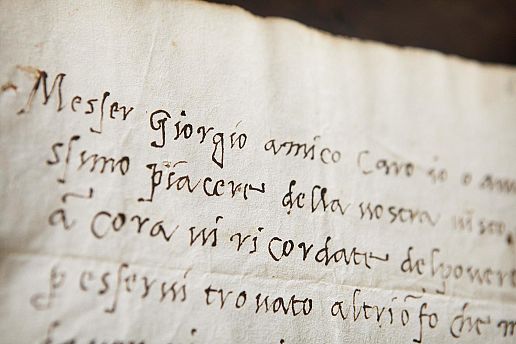 Messer Giorgio amico caro io o au
ssimo piacere della vostra
ācora vi ricordate del povero
p esservi trovato altriōfo che m